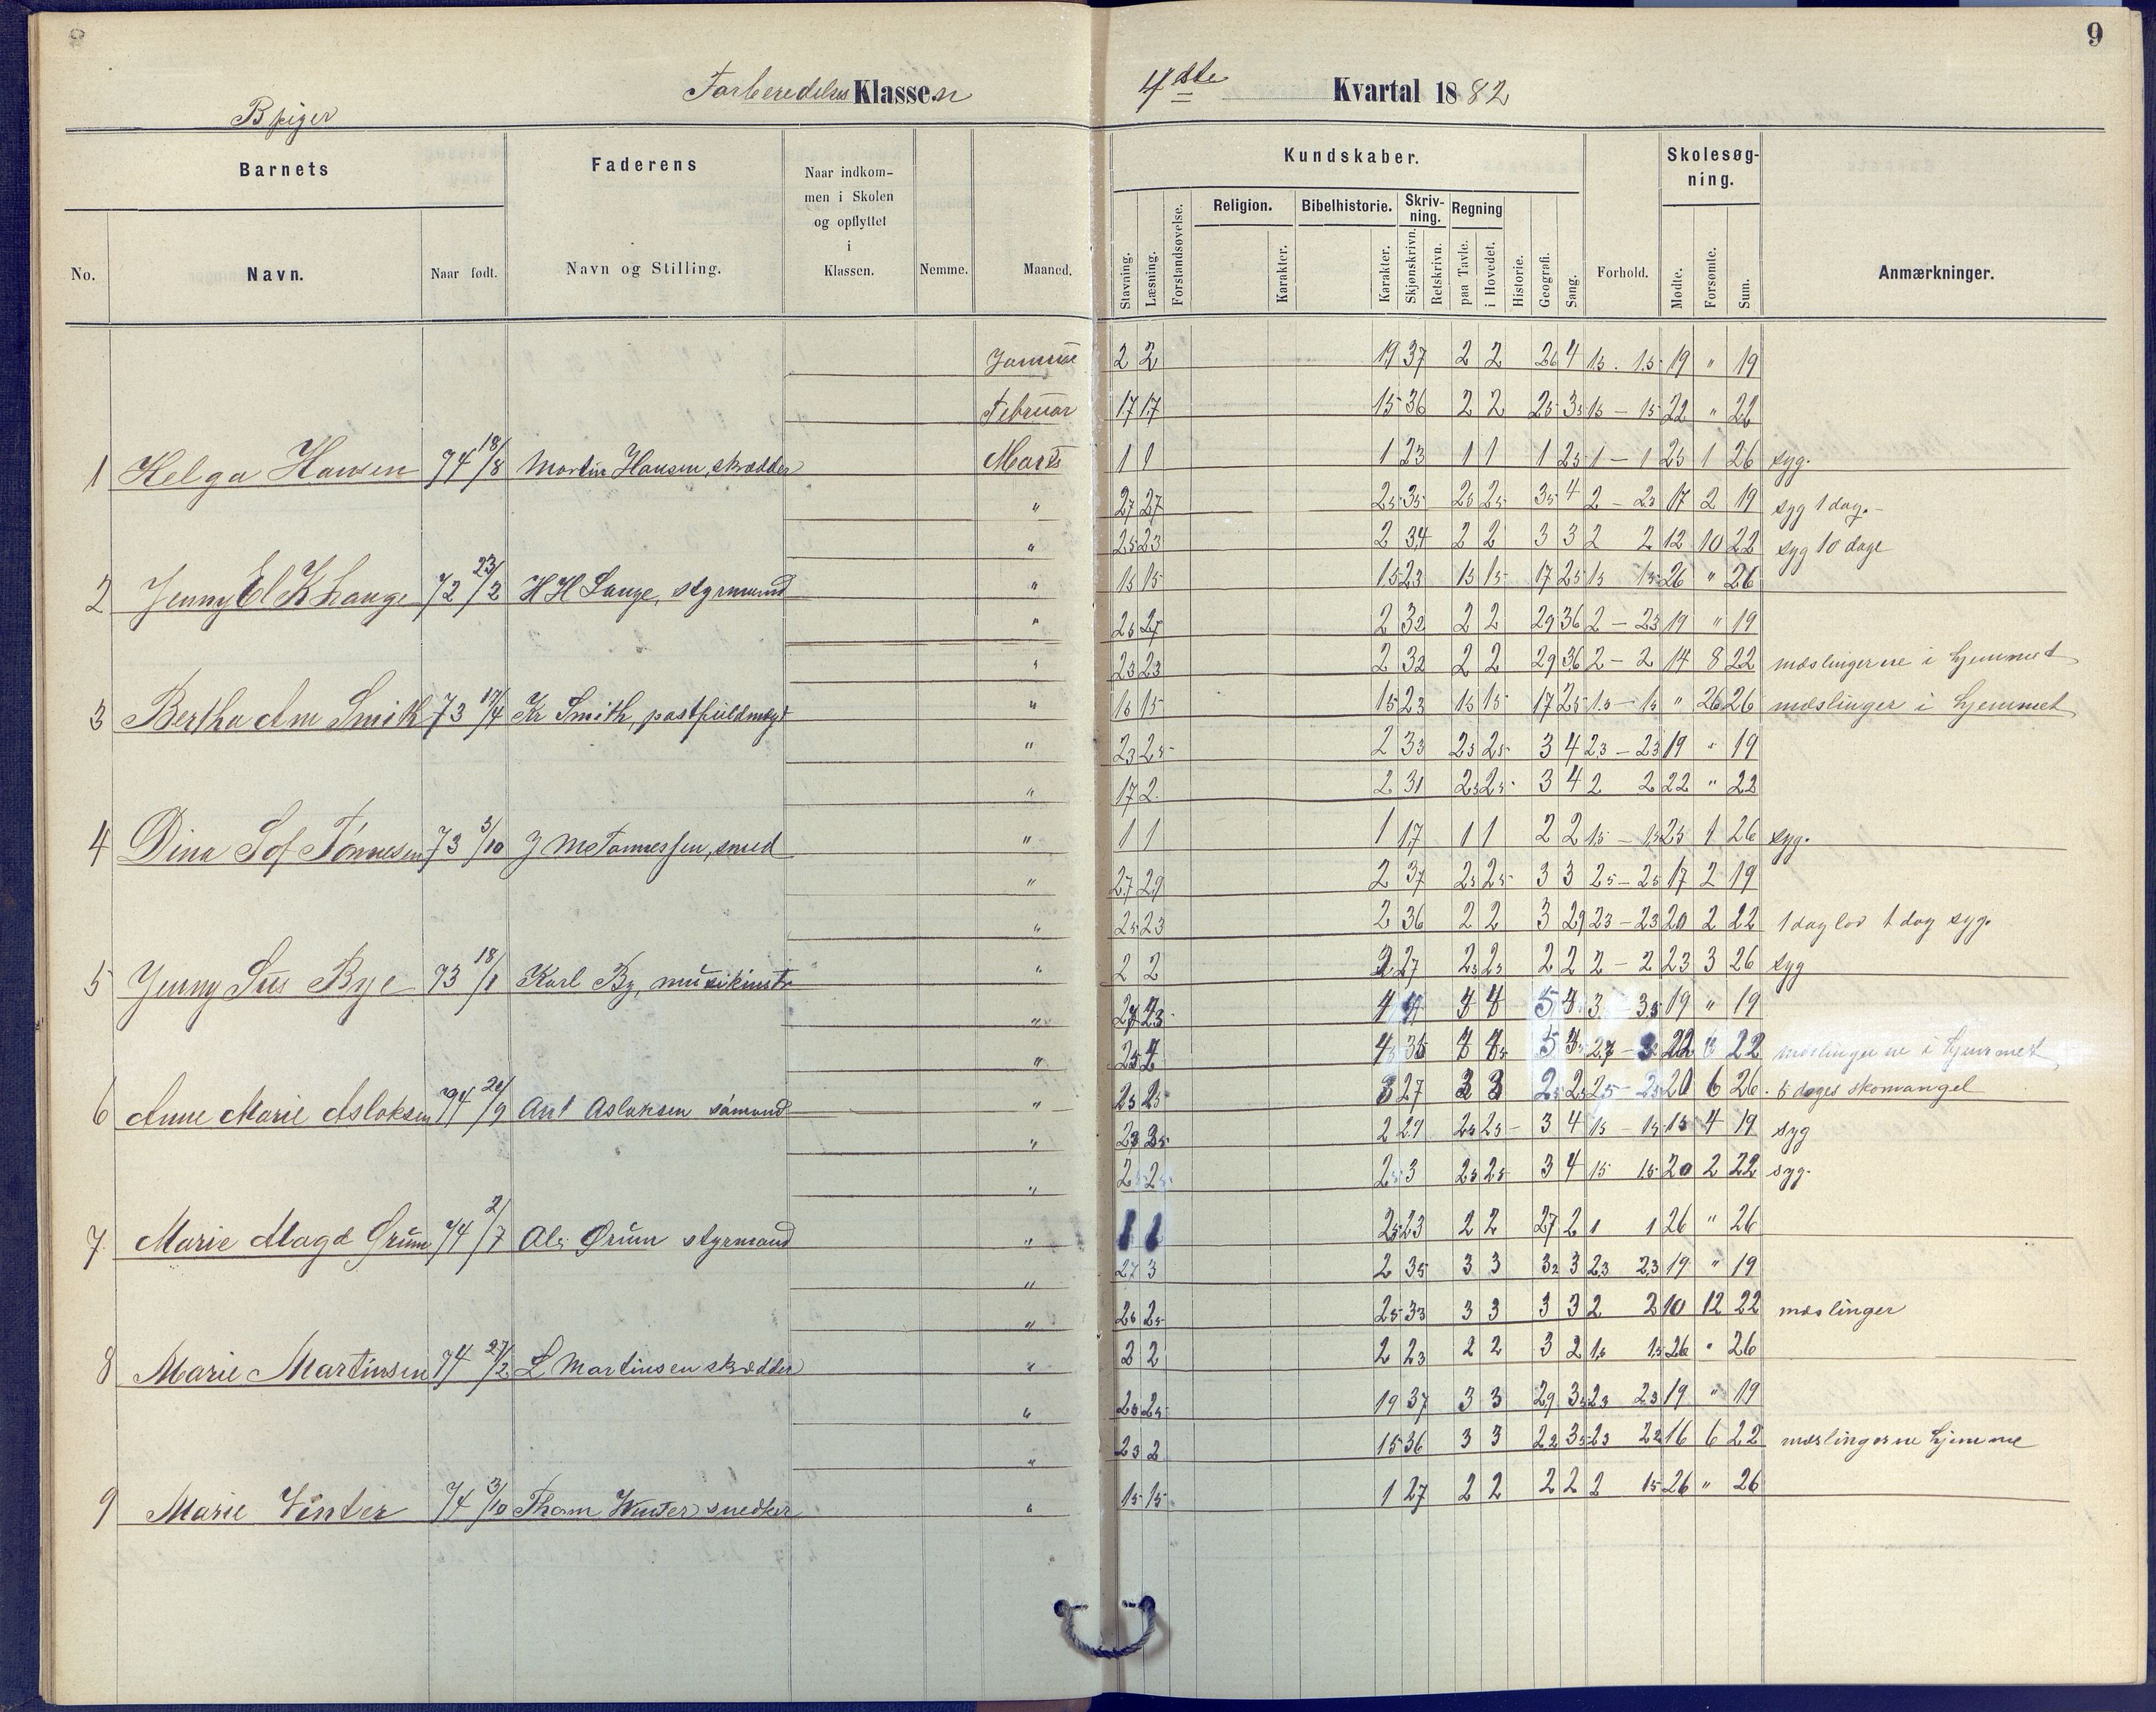 8
Forberedelses Klassen
B piger
Barnets
Faderens
Naar indkom-
men i Skolen
og opflyttet
i
Klassen.
No.
Navn.
Naar født.
Navn og Stilling.
Nemme.
Maaned.
Januar
Februar
1 Helga Hansen 74 18/8 Martin Hansen, skrædder Marts
"
"
2 Jenny El K Lange 72 23/2 H H Lange, styrmand "
"
"
3 Bertha Am Smith 73 17/4 Kr Smith, postfuldmegt "
"
"
4 Dina Sof Tønnesen 73 3/10 J M Tønnessen, smed "
"
"
5 Jenny Sus Bye 73 18/1 Karl By, musikinstr "
"
"
6 Anne Marie Aslaksen 74 20/9 Ant Aslaksen sømand "
"
"
7 Marie Magd Ørum 74 2/7 Ole Ørum styrmand "
"
"
8 Marie Martinsen 74 27/2 L Martinsen skrædder "
"
"
9 Marie Vinter 74 3/10 Thom Winter snedker "
9
4de Kvartal 1882
Kundskaber.
Skolesøg-
ning.
Religion.
Bibelhistorie.
Skriv-
ning.
Regning
Stavning.
Læsning.
Forstandsøvelse.
Karakter.
Karakter.
Skjønskrivn.
Retskrivn.
paa Tavle.
i Hovedet.
Historie.
Geografi.
Sang.
Forhold.
Mødte.
Forsømte.
Sum.
Anmærkninger.
2 2 19 37 2 2 26 4 15 . 15 19 " 19
17 17 15 36 2 2 25 35 15 - 15 22 " 22
1 1 1 23 1 1 1 25 1 - 1 25 1 26 syg.
27 27 25 35 25 25 35 4 2 - 23 17 2 19 syg 1 dag.
25 23 2 34 2 2 3 3 2 2 12 10 22 syg 10 dage
15 15 15 23 15 15 17 25 15 15 26 " 26
25 27 2 32 2 2 29 36 2 - 23 19 " 19
23 23 2 32 2 2 29 36 2 - 2 14 8 22 mæslingerne i hjemmet
15 15 15 23 15 15 17 25 15 - 15 " 26 26 mæslinger i hjemmet
23 25 2 33 25 25 3 4 23 - 23 19 " 19
17 2 2 31 25 25 3 4 2 2 22 " 22
1 1 1 17 1 1 2 2 15 - 15 25 1 26 syg.
27 29 2 37 25 25 3 3 25 - 25 17 2 19
25 23 2 36 2 2 3 29 23 - 23 20 2 22 1 dag lov 1 dag syg.
2 2 2 27 23 23 2 2 2 - 2 23 3 26 syg
19 " 19
22 mæslingerne i hjemmet
25 25 3 27 3 3 25 25 25 - 25 20 6 26 . 5 dages skomangel
23 35 2 29 25 25 3 4 15 - 15 15 4 19 syg
25 25 25 3 25 25 3 4 15 15 20 2 22 syg.
1 1 25 23 2 2 27 2 1 1 26 " 26
27 3 2 35 3 3 32 3 23 23 19 " 19
25 25 25 33 3 3 3 3 2 2 10 12 22 mæslinger
2 2 2 23 2 2 3 2 15 15 26 " 26
25 25 19 37 3 3 29 35 23 23 19 " 19
23 2 15 36 3 3 22 35 23 22 16 6 22 mæslingerne hjemme
15 15 1 27 2 2 2 2 2 15 26 " 26